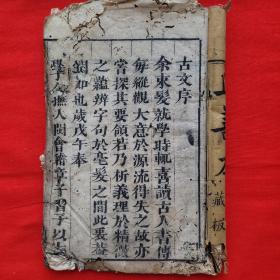 古文序
余束髮就學時輒喜讀古人書傳
每縱觀大意於源流得失之故亦
嘗探其要領若乃析義理於精微
之蘊辨字句於毫髮之間此衷蓋
闕如也歲戊午奉
學
撫八閩會稽章子習子以古
藏板